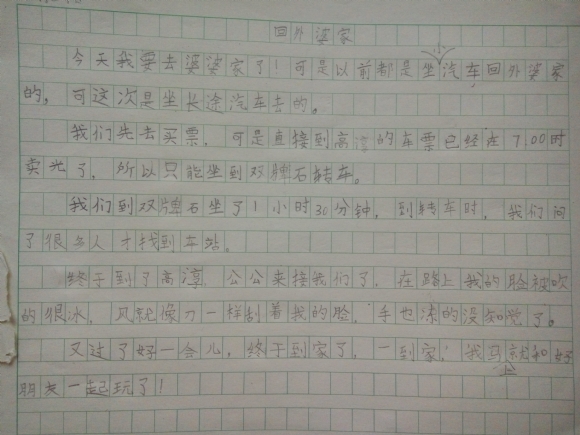 回外婆家
今天我要去婆婆家了！可是以前都是坐汽车回外婆家
的，可这次是坐长途汽车去的。
我们先去买票，可是直接到高淳的车票已经在7.00时
卖光了，所以只能坐到双牌石转车。
我们到双牌石坐了1小时30分钟，到转车时，我们问
了很多人才找到车站。
终于到了高淳，公公来接我们了，在路上我的脸被吹
的很冰，风就像刀一样刮着我的脸，手也冻的没知觉了。
又过了好一会儿，终于到家了，一到家，我马上就和好
朋友一起玩了！